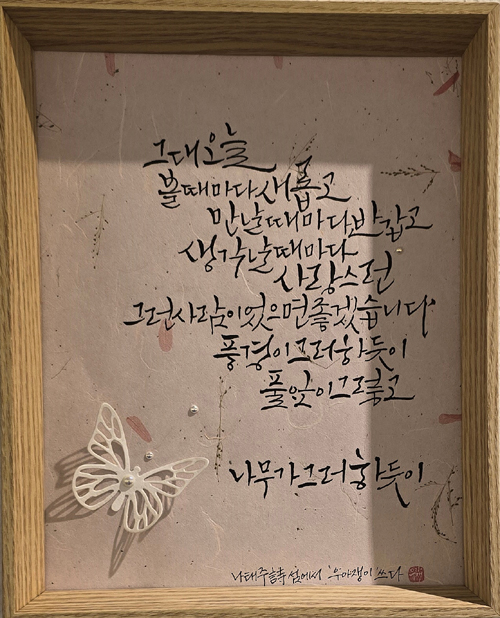 그대 오늘
볼 때마다 새롭고
만날 때마다 반갑고
생각날 때마다
사랑스런
그런 사람이었으면 좋겠습니다
풍경이 그러하듯이
풀잎이 그렇고
나무가 그러하듯이
나태주 詩 섬에서 '우아쟁이' 쓰다